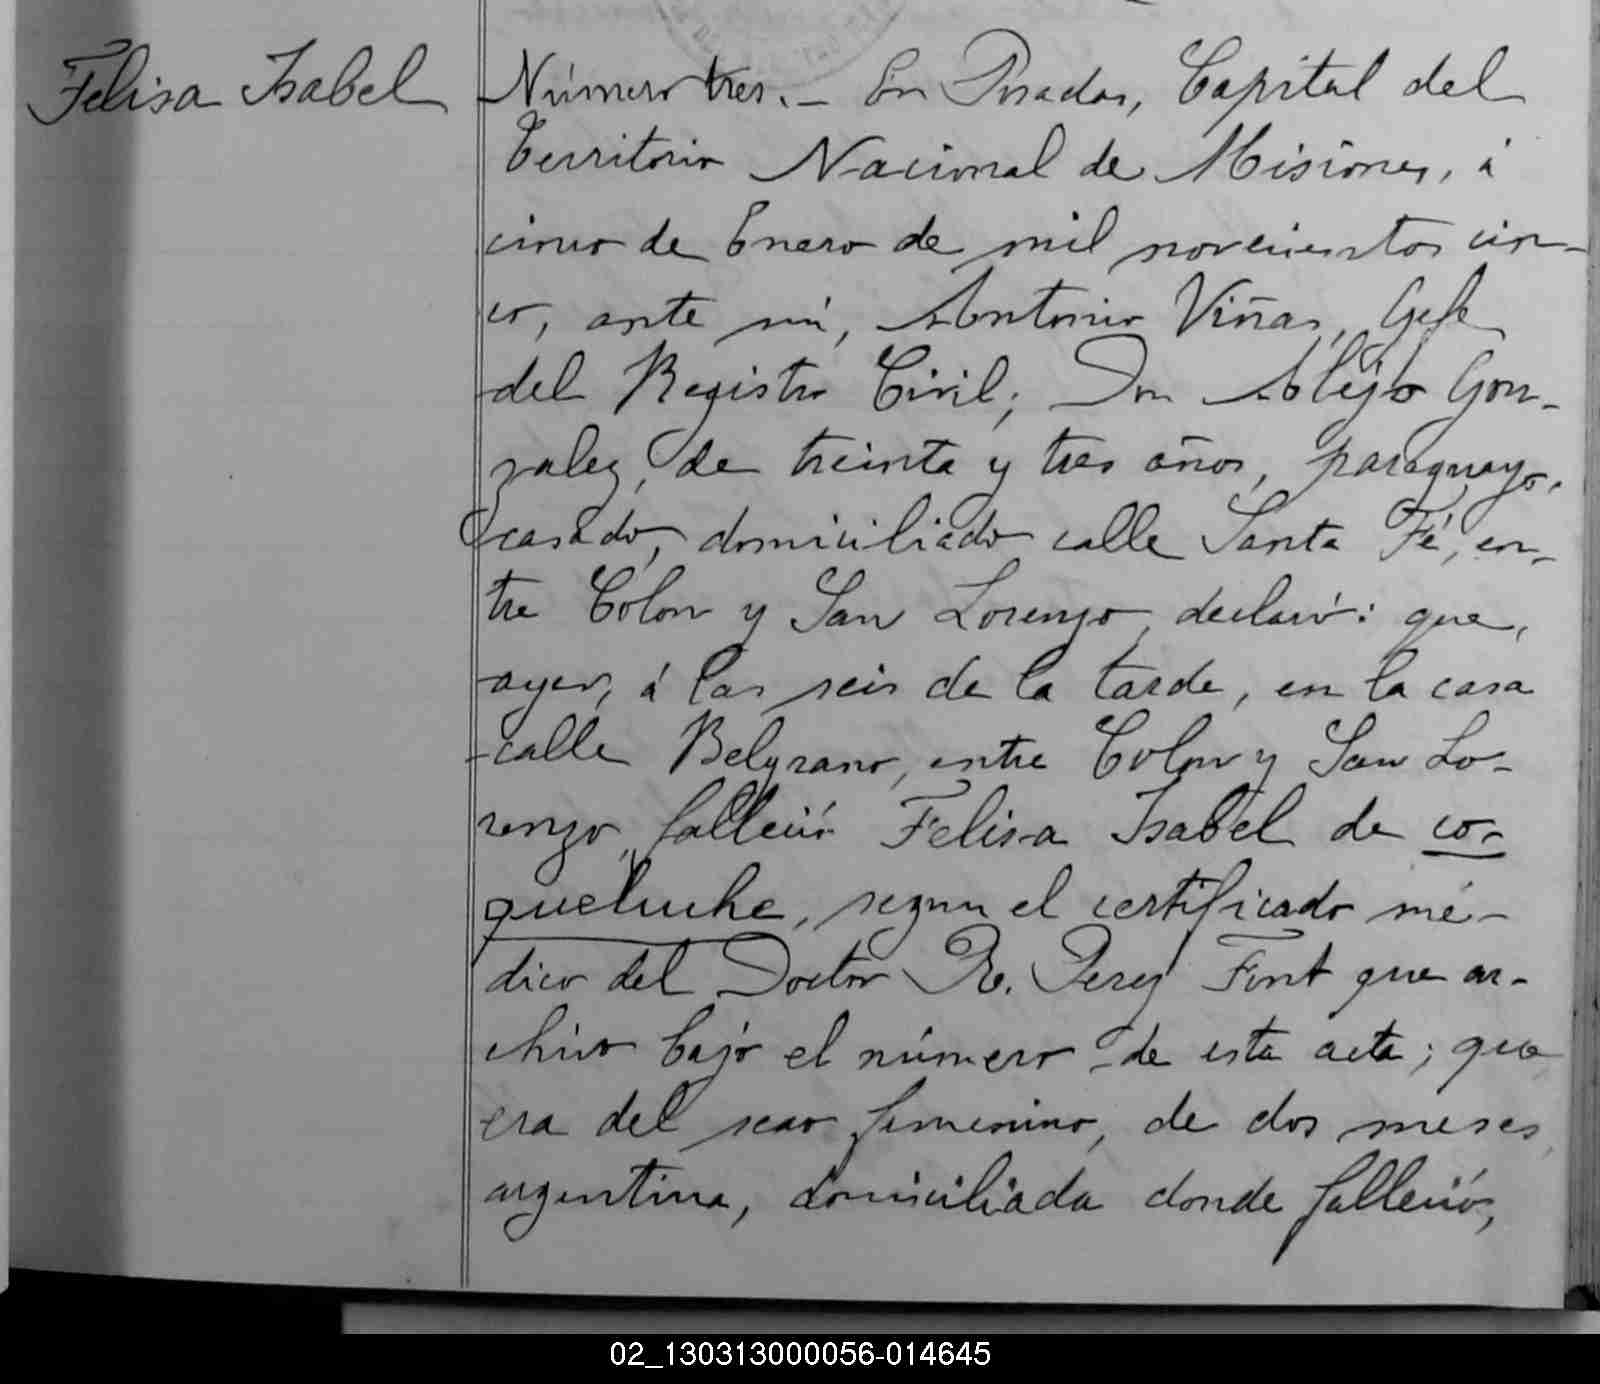 Felisa Isabel
Número tres.— En Posadas, Capital del
Territorio Nacional de Misiones, á
cinco de Enero de mil novecientos cin-
co, ante mí, Antonio Viñas, Gefe
del Registro Civil; Don Alejo Gon-
zalez, de treinta y tres años, paraguayo,
casado, domiciliado calle Santa Fé, en-
tre Colon y San Lorenzo, declaró: que,
ayer, á las seis de la tarde, en la casa
calle Belgrano, entre Colon y San Lo-
renzo, falleció Felisa Isabel de co-
queluche, segun el certificado mé-
dico del Doctor R. Perez Font que ar-
chivo bajo el número de esta acta; que
era del sexo femenino, de dos meses,
argentina, domiciliada donde falleció,
02_130313000056-014645